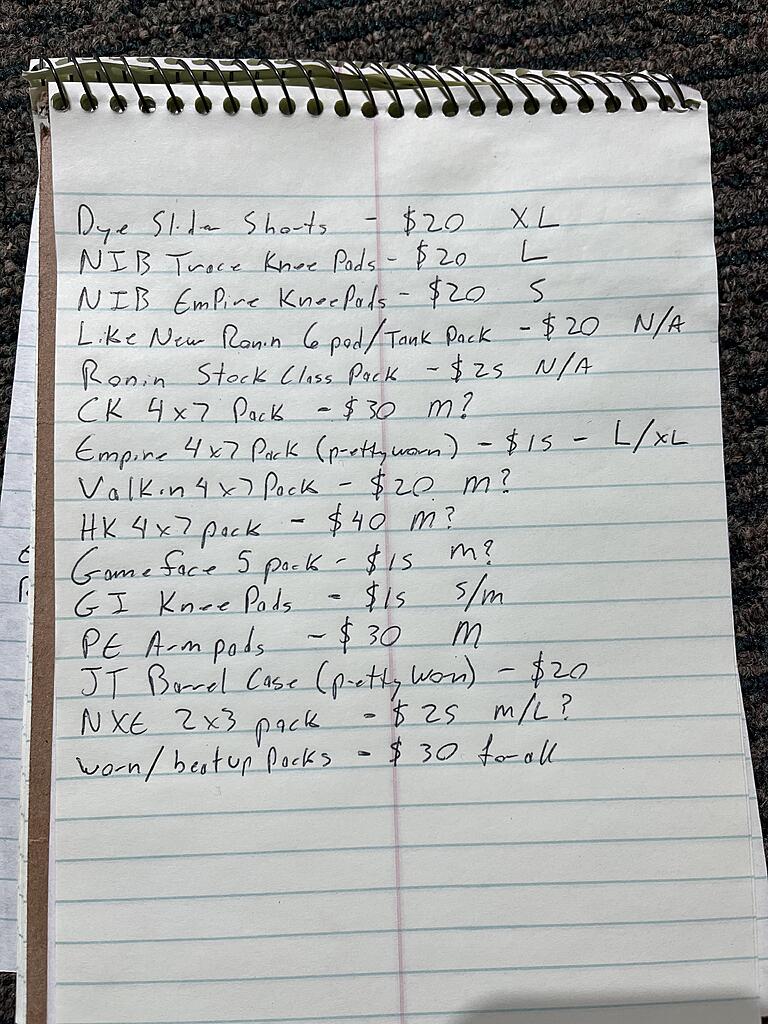 Dye Slider Shorts - $20 XL
NIB Trace Knee Pads - $20 L
NIB Empire KneePads - $20 S
Like New Ronin 6 pod/Tank Pack - $20 N/A
Ronin Stock Class Pack - $25 N/A
CK 4x7 Pack - $30 m?
Empire 4x7 Pack (pretty worn) - $15 - L/XL
Valkin 4x7 Pack - $20 m?
HK 4x7 pack - $40 m?
Gameface 5 pack - $15 m?
GI Knee Pads - $15 S/m
PE Arm pads - $30 M
JT Barrel Case (pretty worn) - $20
NXE 2x3 pack - $25 m/L?
worn/beatup Packs - $30 for all